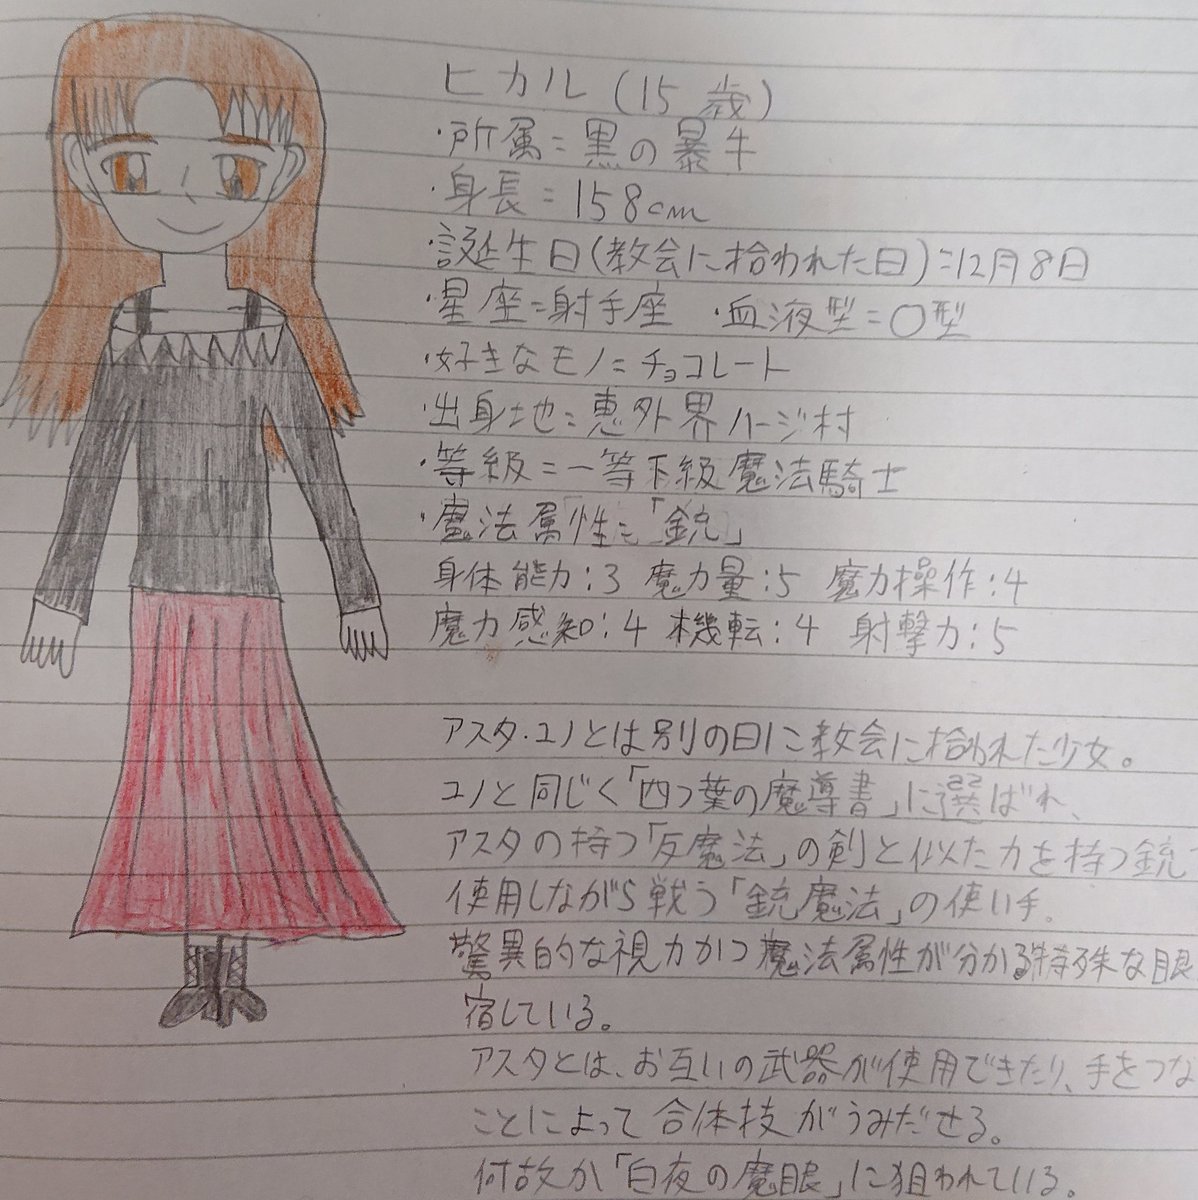 ヒカル(15歳)
・所属=黒の暴牛
・身長=158cm
・誕生日(教会に拾われた日)=12月8日
・星座=射手座 ・血液型=O型
・好きなモノ=チョコレート
・出身地=恵外界ハージ村
・等級=一等下級魔法騎士
・魔法属性=「銃」
身体能力:3 魔力量:5 魔力操作:4
魔力感知:4 機転:4 射撃力:5
アスタ・ユノとは別の日に教会に拾われた少女。
ユノと同じく「四つ葉の魔導書」に選ばれ、
アスタの持つ「反魔法」の剣と似た力を持つ銃
使用しながら戦う「銃魔法」の使い手。
驚異的な視力かつ魔法属性が分かる特殊な眼
宿している。
アスタとは、お互いの武器が使用できたり、手をつな
ことによって合体技がうみだせる。
何故か「白夜の魔眼」に狙われている。